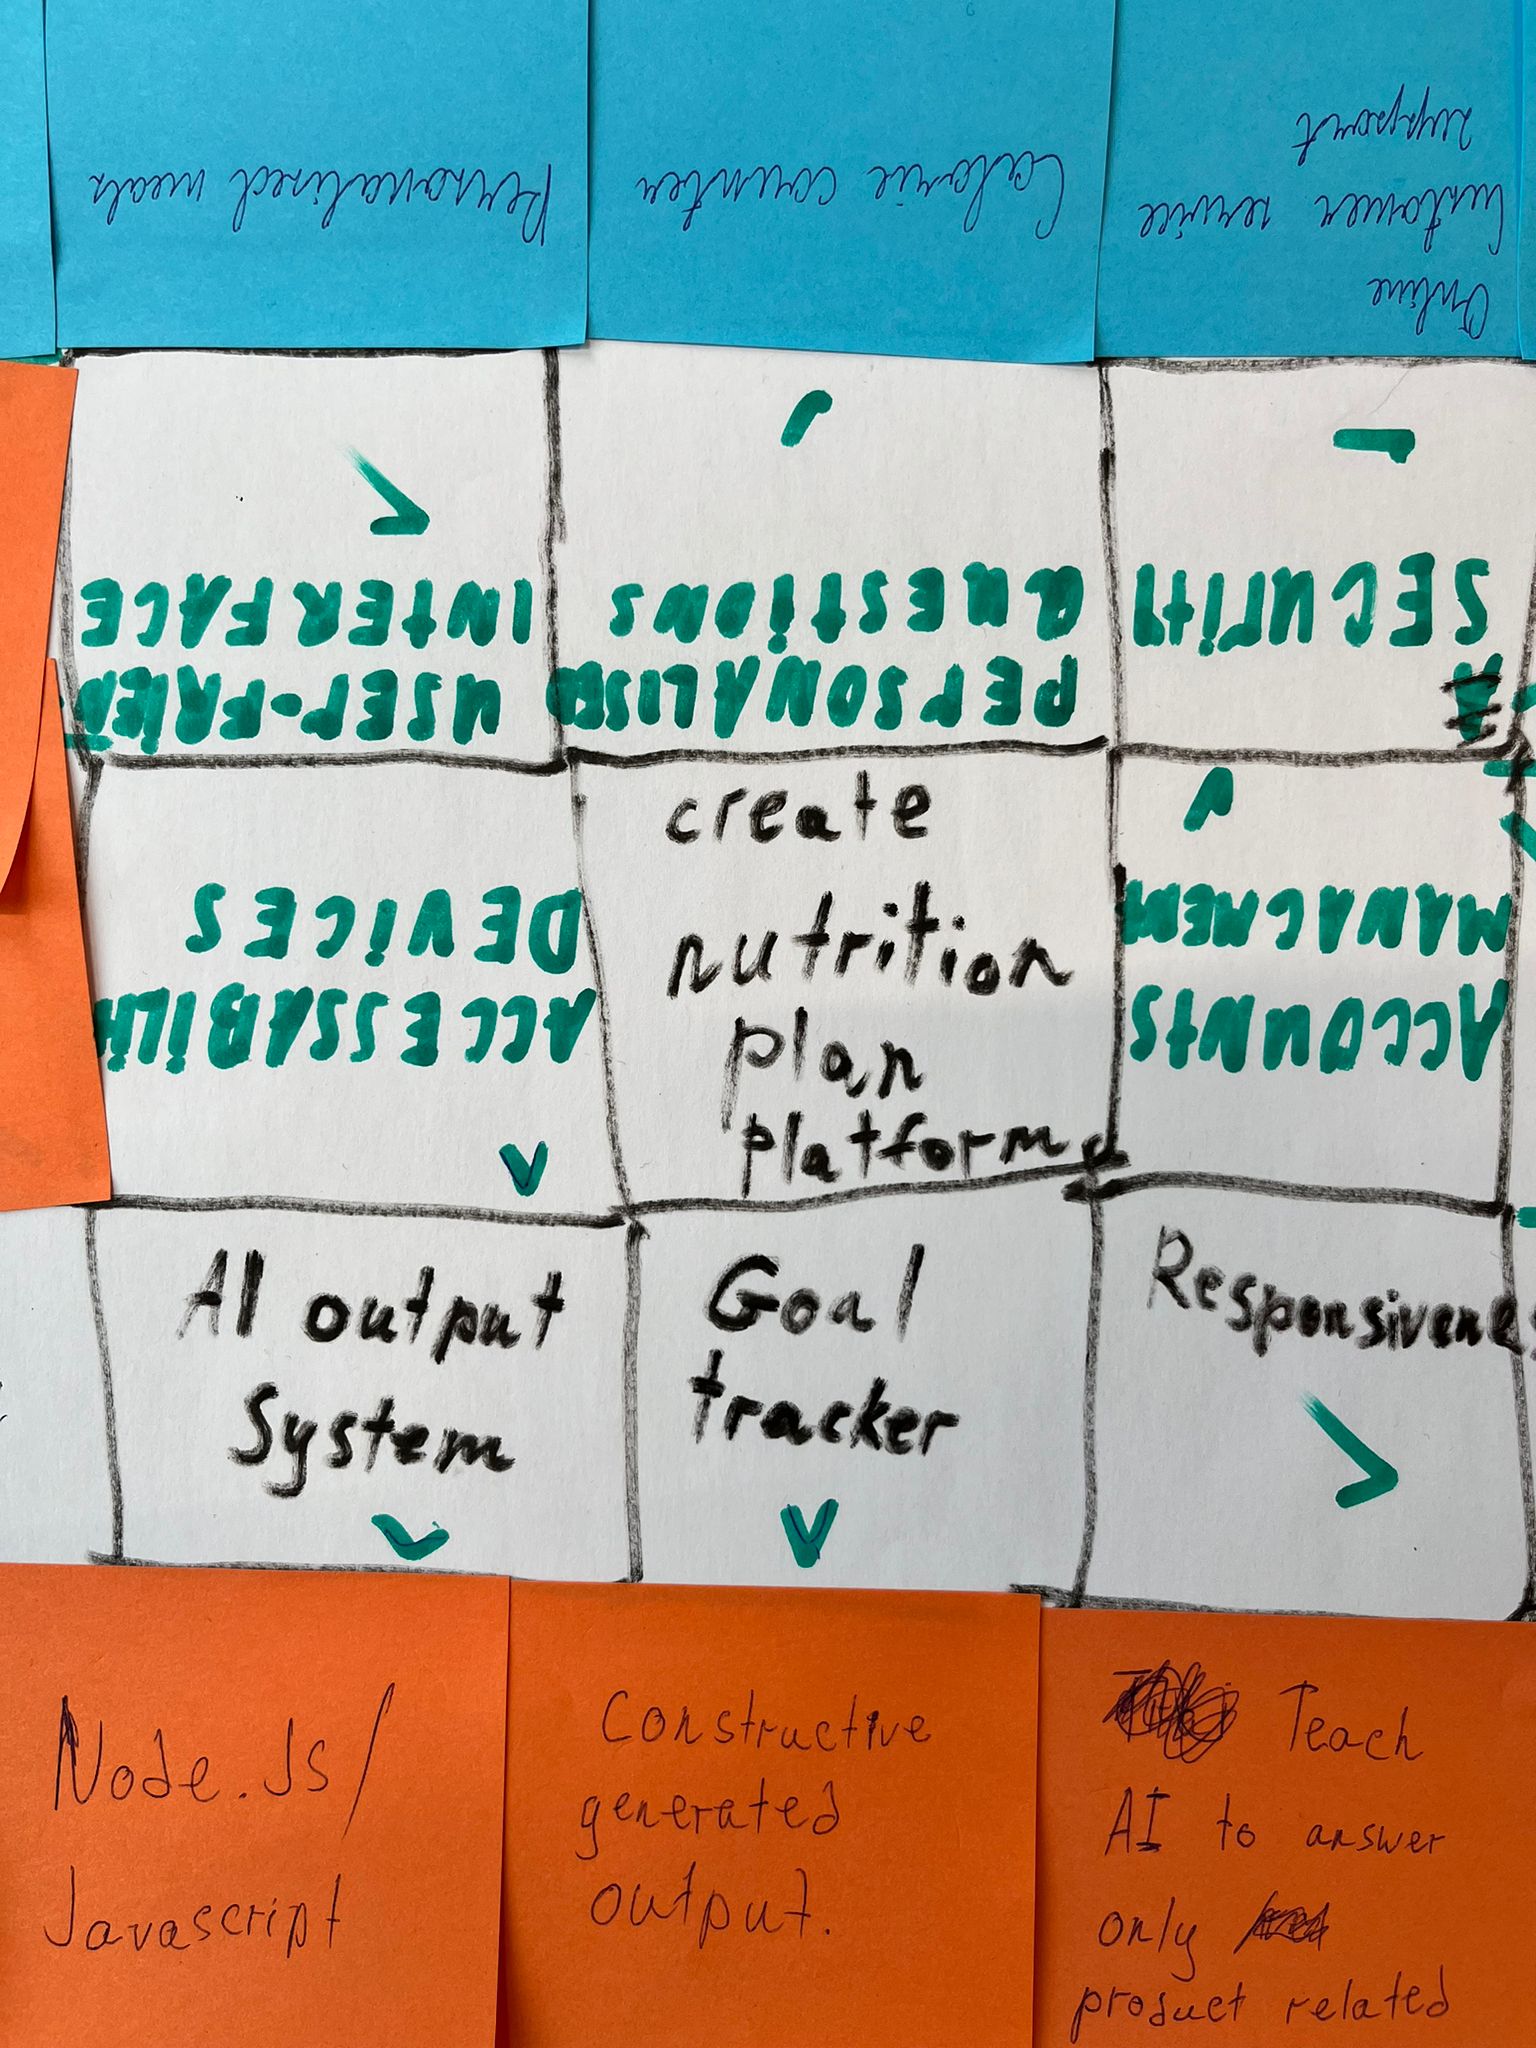 Personalised meals
Calorie counter
Online
Customer service
support
USER-FRIEN
INTERFACE
PERSONALISED
QUESTIONS
SECURITY
ACCESSABILIT
DEVICES
create
nutrition
plan
platform
ACCOUNTS
MANAGMEN
AI output
System
Goal
tracker
Responsivenes
Node.Js/
Javascript
Constructive
generated
output.
Teach
AI to answer
only
product related